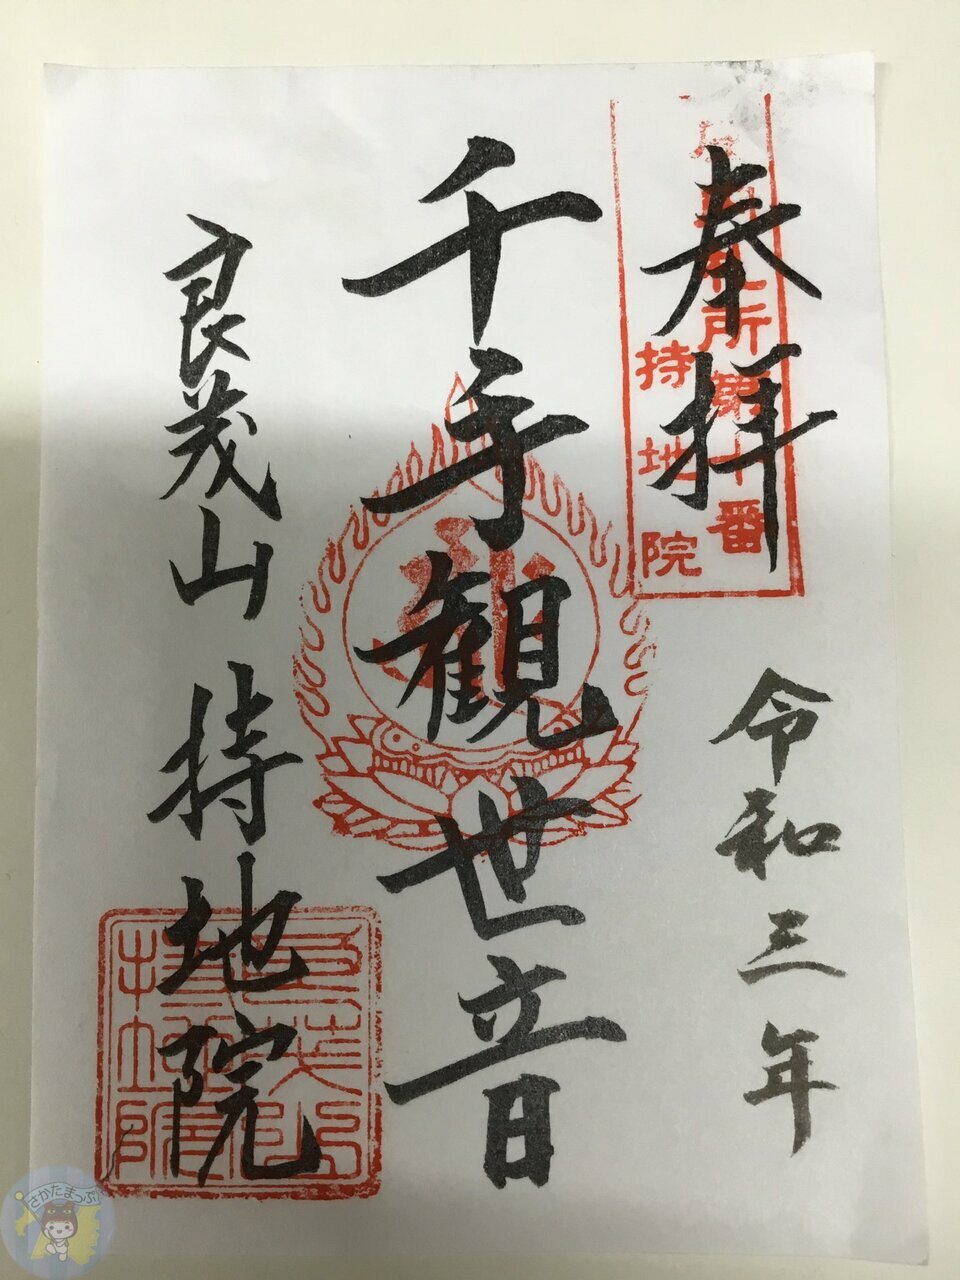 奉拝
令和三年
千手観世音
良茂山 持地院
所第十番
持地院
さかたまっぷ